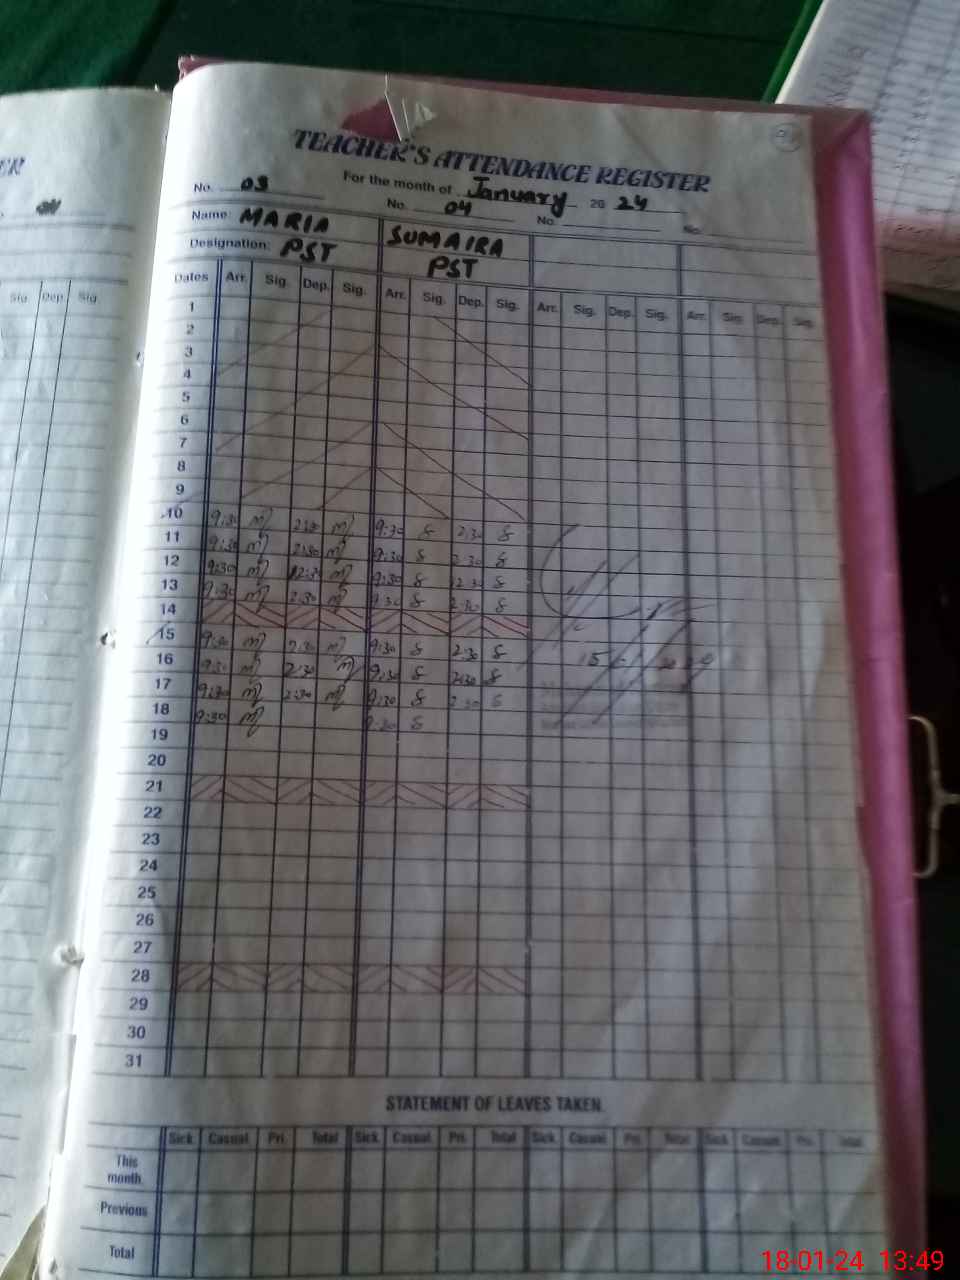 TEACHER'S ATTENDANCE REGISTER
No. 03 For the month of January 20 24
No. 04 No. No.
Name: MARIA SUMAIRA
Designation: PST PST
Dates Arr. Sig. Dep. Sig. Arr. Sig. Dep. Sig. Arr. Sig. Dep. Sig. Arr. Sig. Dep. Sig.
Sig. Dep. Sig.
1
2
3
4
5
6
7
8
9
10 9:30 m 2:30 m 9:30 S 2:30 S
11 9:30 m 2:30 m 9:30 S 2:30 S
12 9:30 m 12:30 m 9:30 S 12:30 S
13 9:30 m 2:30 m 9:30 S 2:30 S
14
15 9:30 m 2:30 m 9:30 S 2:30 S
16 9:30 m 2:30 m 9:30 S 2:30 S
17 9:30 m 2:30 m 9:30 S 2:30 S
18 9:30 m 9:30 S
19
20
21
22
23
24
25
26
27
28
29
30
31
STATEMENT OF LEAVES TAKEN
Sick. Casual Pri. Total Sick. Casual Pri. Total Sick. Casual Pri. Total Sick. Casual Pri. Total
This
month
Previous
Total
18-01-24 13:49